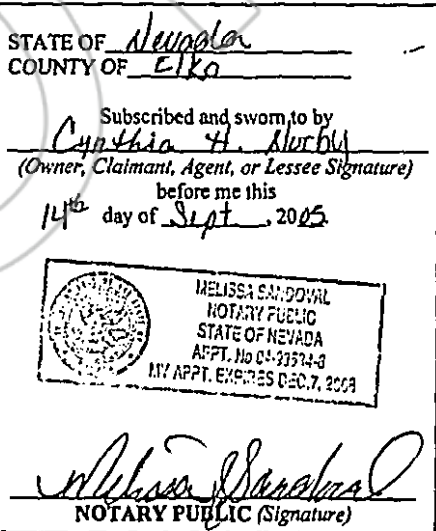 STATE OF Nevada
COUNTY OF Elko
Subscribed and sworn to by
Cynthia H. Norby
(Owner, Claimant, Agent, or Lessee Signature)
before me this
14th day of Sept, 2005
MELISSA SANDOVAL
NOTARY PUBLIC
STATE OF NEVADA
APPT. No
MY APPT. EXPIRES DEC. 7,
Melissa Sandoval
NOTARY PUBLIC (Signature)